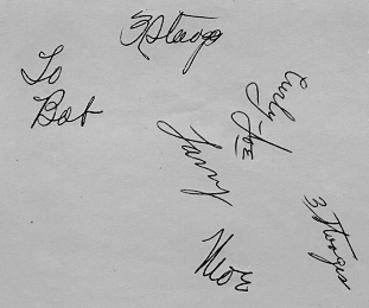 3 Stooges
To
Bob
Curly-Joe
Larry
3 Stooges
Moe